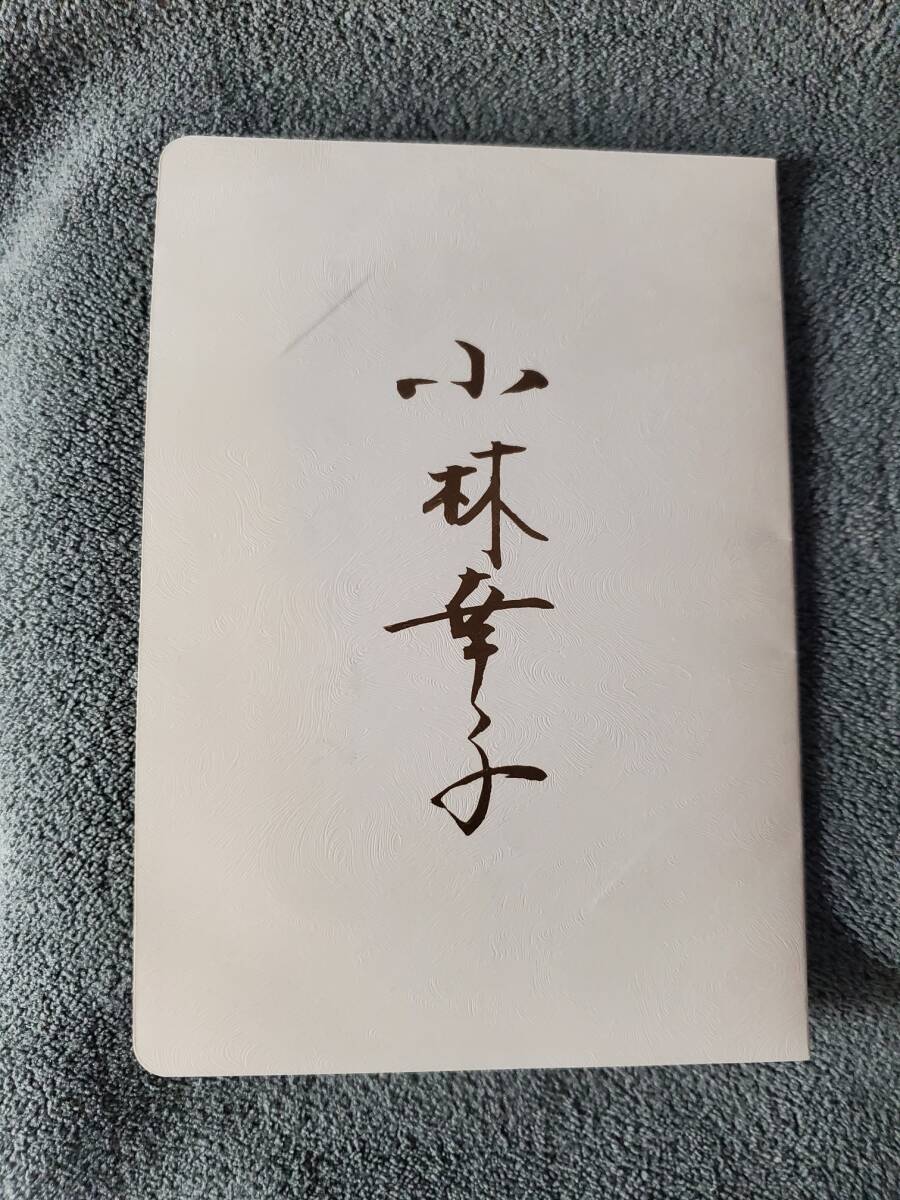 小林幸子